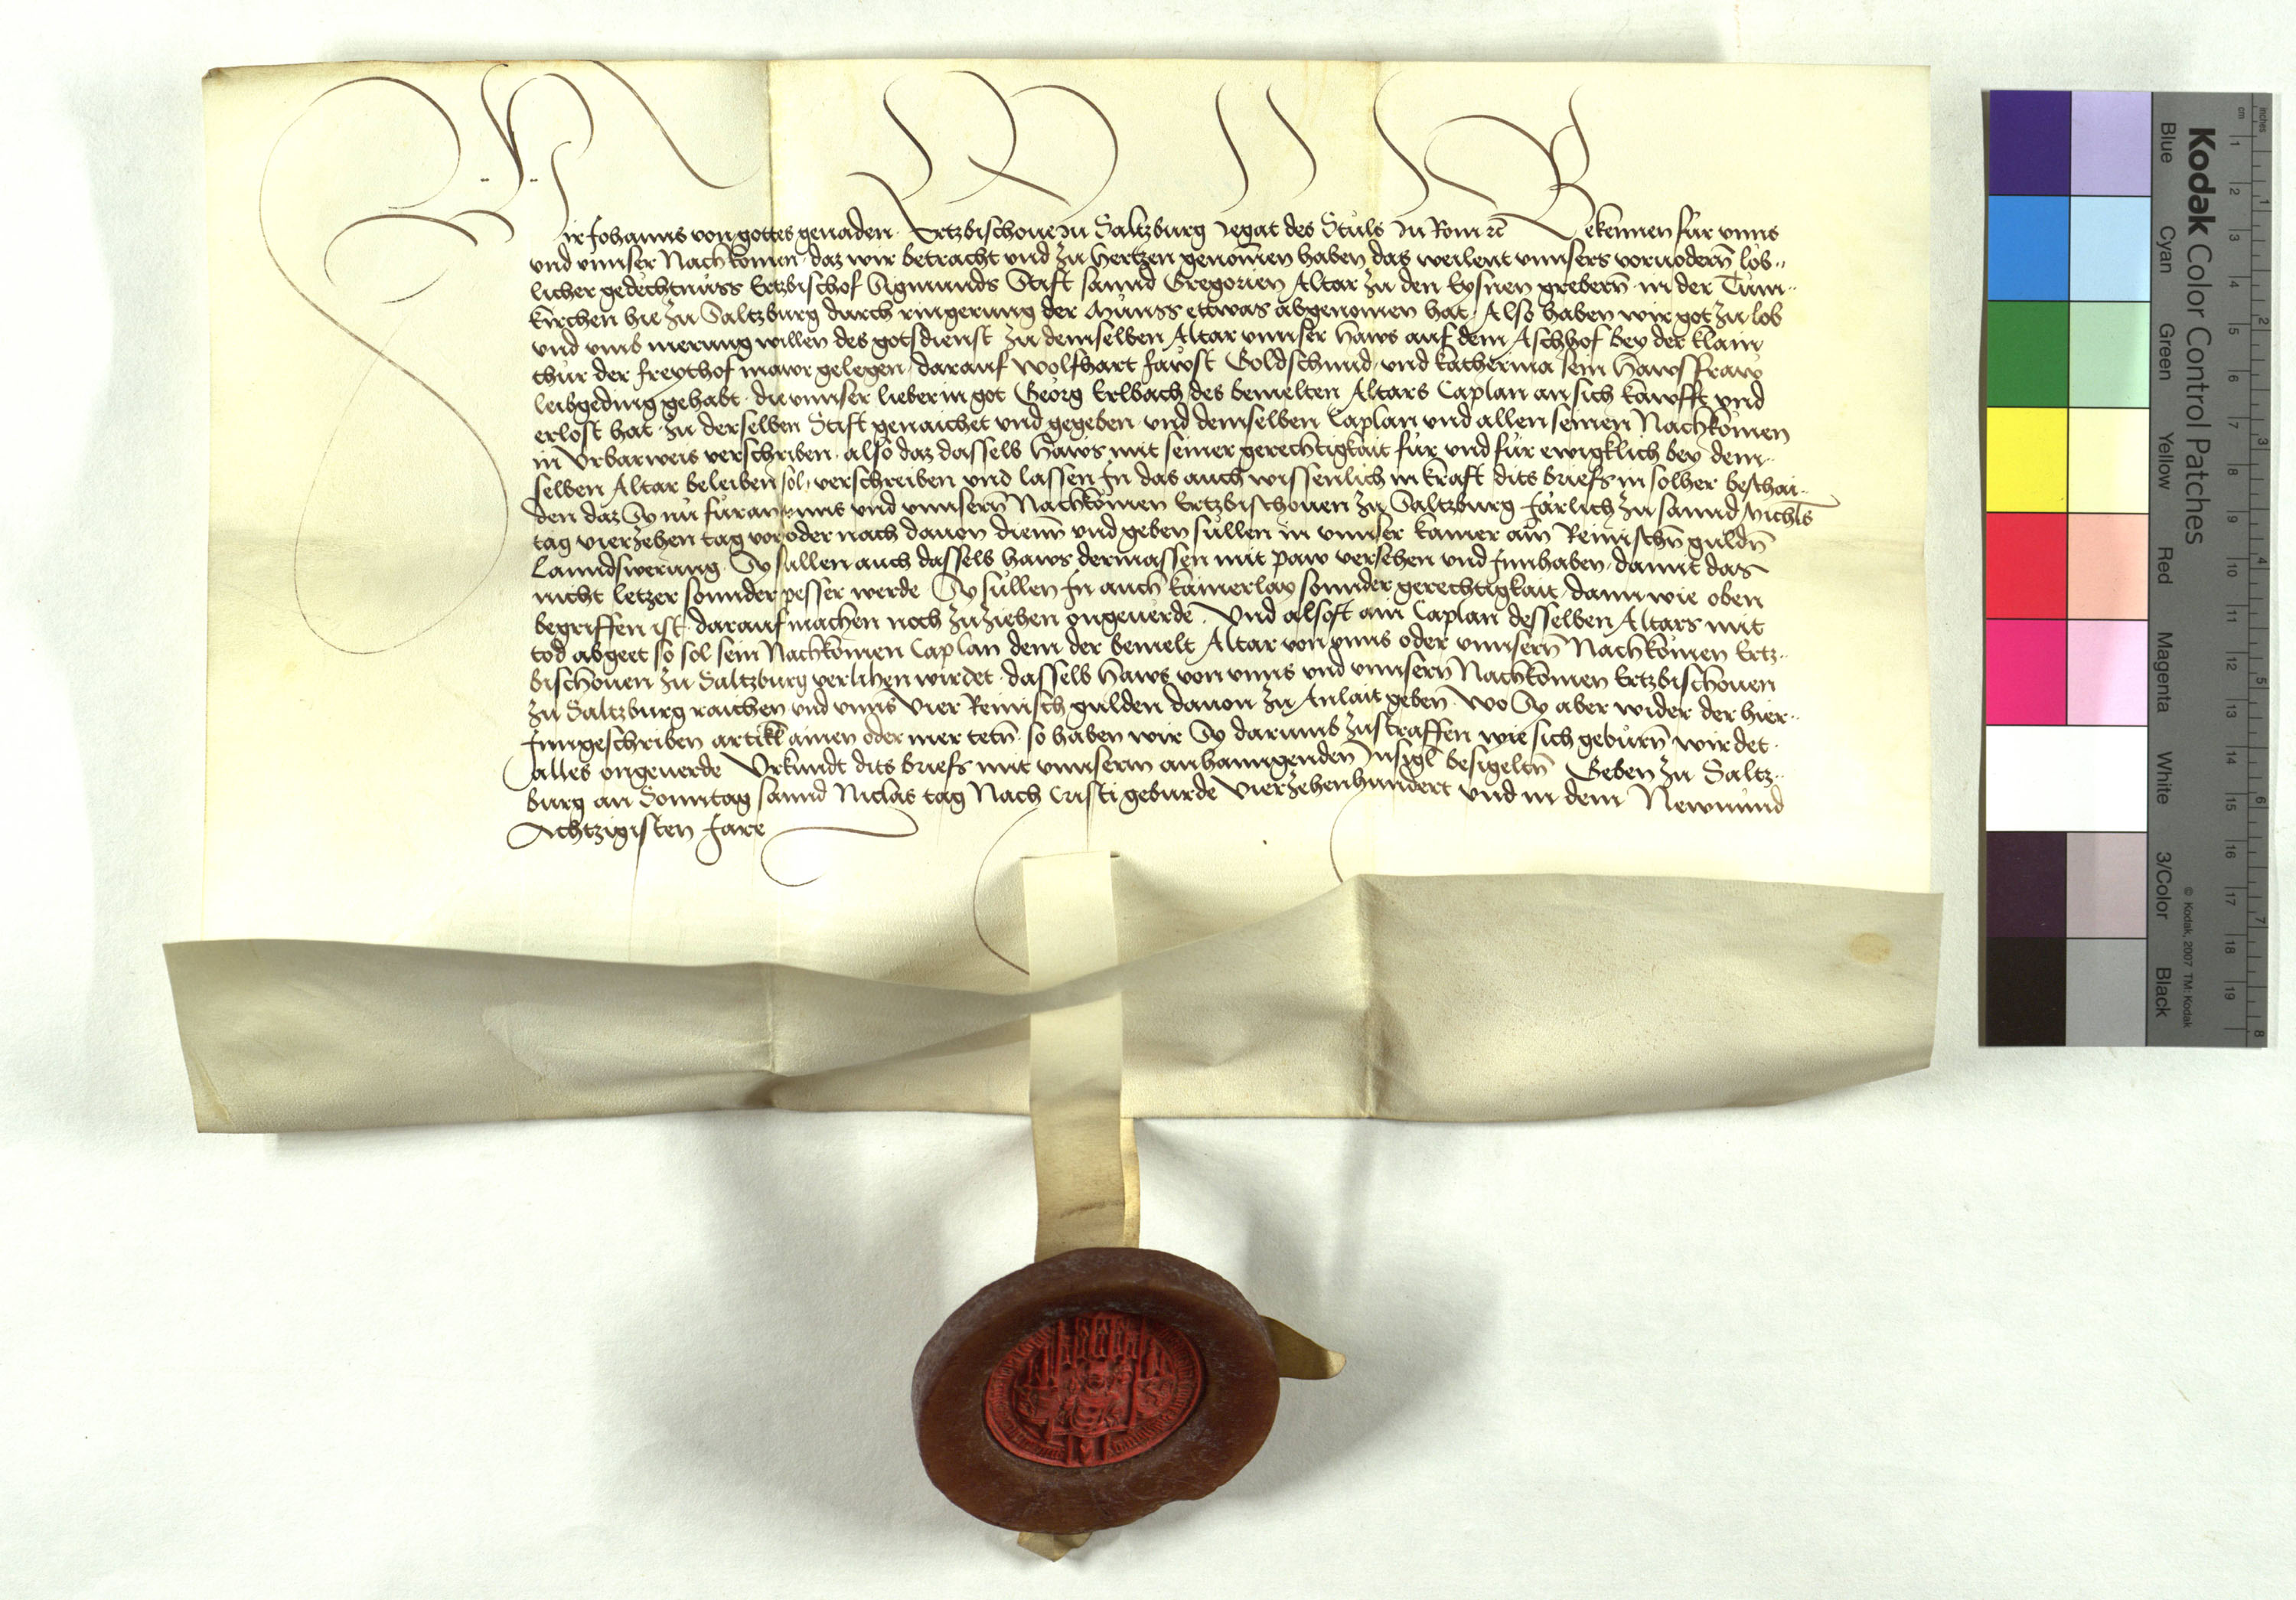 Wir Johanns von gottes genaden Ertzbischoue zu Saltzburg Legat des Stůls zu Rom ꝛc Bekennen fůr vnns
vnd vnnser Nachkomen daz wir betracht vnd zu Hertzen genomen haben das weilent vnnsers voruodern lob..
licher gedechtnůss Ertzbischof Sigmunds Stift sannd Gregorien Altar zu den Eysnen grebern in der Tům..
kirchen hie zu Saltzburg durch ringerung der Můnss etwas abgenomen hat Also haben wir got zu lob
vnd vmb merung willen des gotsdienst zu demselben Altar vnnser Haws auf dem Aschhof bey der klain
thůr der freythof mawr gelegen darauf Wolfhart Fawst Goldschmid vnd Katherina sein Hawsfraw
leibgeding gehabt die vnnser lieber in got Georg Erlbach des bemelten Altars Caplan an sich kawfft vnd
erlost hat zu derselben Stift genaichet vnd gegeben vnd demselben Caplan vnd allen seinen Nachkomen
in Vrbarweis verschriben also daz dasselb Haws mit seiner gerechtigkait fůr vnd fůr ewigklich bey dem..
selben Altar beleiben sol verschreiben vnd lassen In das auch wissenlich in kraft dits briefs in solher beschai..
den daz Sy nu fůran vnns vnd vnnsern Nachkomen Ertzbischouen zu Saltzburg Järlich zu sannd Michls
tag vierzehen tag vor oder nach dauon dienn vnd geben sůllen in vnnser kamer ain Reinischn guldn
Lanndswerung Sy sullen auch dasselb haws dermassen mit paw versehen vnd Innhaben damit das
nicht letzer sonnder pesser werde Sy sůllen In auch kainerlay sonnder gerechtigkait dann wie oben
begriffen ist darauf machen noch zuziehen ongeuerde Vnd alsoft ain Caplan desselben Altars mit
tod abgeet so sol sein Nachkomen Caplan dem der bemelt Altar von vnns oder vnnsern Nachkomen Ertz..
bischouen zu Saltzburg verlihen wirdet dasselb Haws von vnns vnd vnnsern Nachkomen Ertzbischouen
zu Saltzburg raichen vnd vnns Vier Reinisch gulden dauon zu Anlait geben wo Sy aber wider der hier..
Inngeschriben artikl ainen oder mer tetn so haben wir Sy darumb zustraffen wie sich gebůrn wirdet
alles ongeuerde Vrkundt dits briefs mit vnnserm anhanngenden Insigl besigeltn Geben zu Saltz..
burg an Sonntag sannd Niclas tag Nach Cristi geburde Vierzehenhundert vnd in dem Newnund
Achtzigisten Jare
Kodak Color Control Patches
Blue Cyan Green Yellow Red Magenta White 3/Color Black
© Kodak, 2007 TM: Kodak
inches 1 2 3 4 5 6 7 8
cm 1 2 3 4 5 6 7 8 9 10 11 12 13 14 15 16 17 18 19